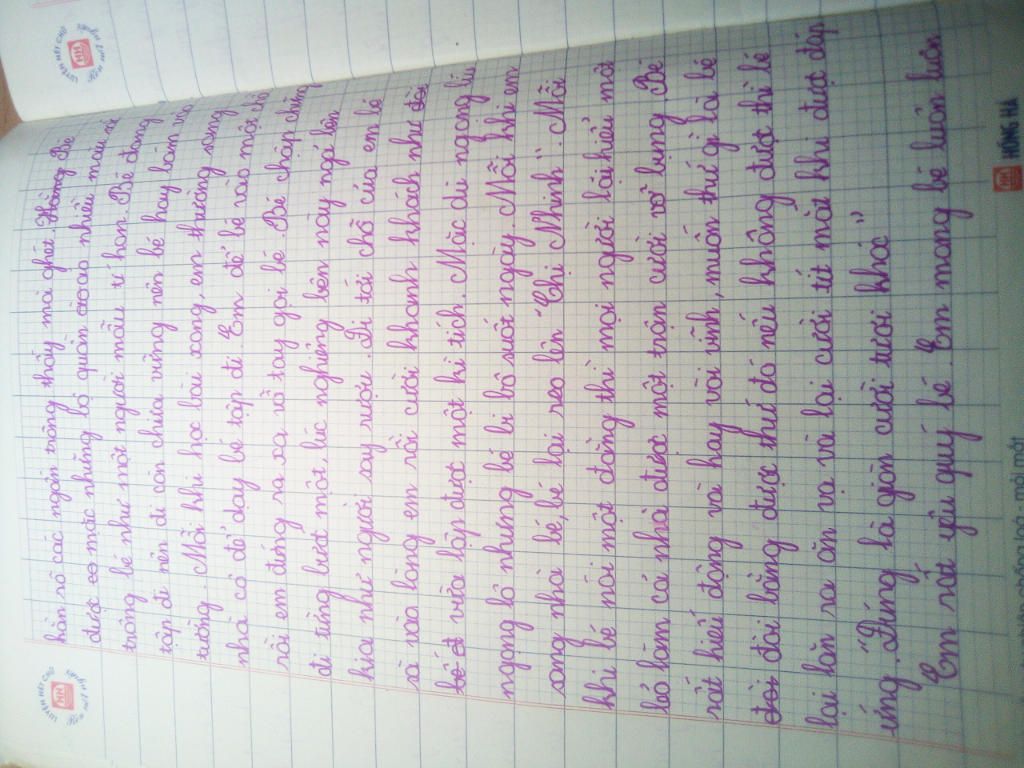 hằn rõ các ngấn trông thấy mà ghét. Hằng Bé
được co mặc những bộ quần áo ao nhiều màu nê
trông bé như một người mẫu tí hon. Bé đang
tập đi nên đi còn chưa vững nên bé hay bám vào
tường. Mỗi khi học bài xong, em thường sang
nhà cô để dạy bé tập đi. Em để bé vào một chỗ
rồi em đứng ra xa vỗ tay gọi bé. Bé chập chững
đi từng bước một, lúc nghiêng bên này ngả bên
kia như người say rượu. Đi tới chỗ của em bé
sà vào lòng em rồi cười khanh khách như đội
bé đ vừa lập được một kì tích. Mặc dù ngọng líu
ngọng lô nhưng bé bi bô suốt ngày. Mỗi khi em
sang nhà bé, bé lại reo lên "Chị Nhinh". Mỗi
khi bé nói một đằng thì mọi người lại hiểu một
béo làm cả nhà được một trận cười vỡ bụng. Bé
rất hiếu động và hay vòi vĩnh, muốn thứ gì là bé
đòi đòi bằng được thứ đó nếu không được thì bé
lại lăn ra ăn vạ và lại cười tít mắt khi được đáp
ứng. "Đúng là giòn cười tươi khóc"
Em rất yêu quý bé. Em mong bé luôn luôn
LUYỆN NÉT CHỮ
Rèn nết người
HH
LUYỆN NÉT CHỮ
Rèn nết người
HH
HỒNG HÀ